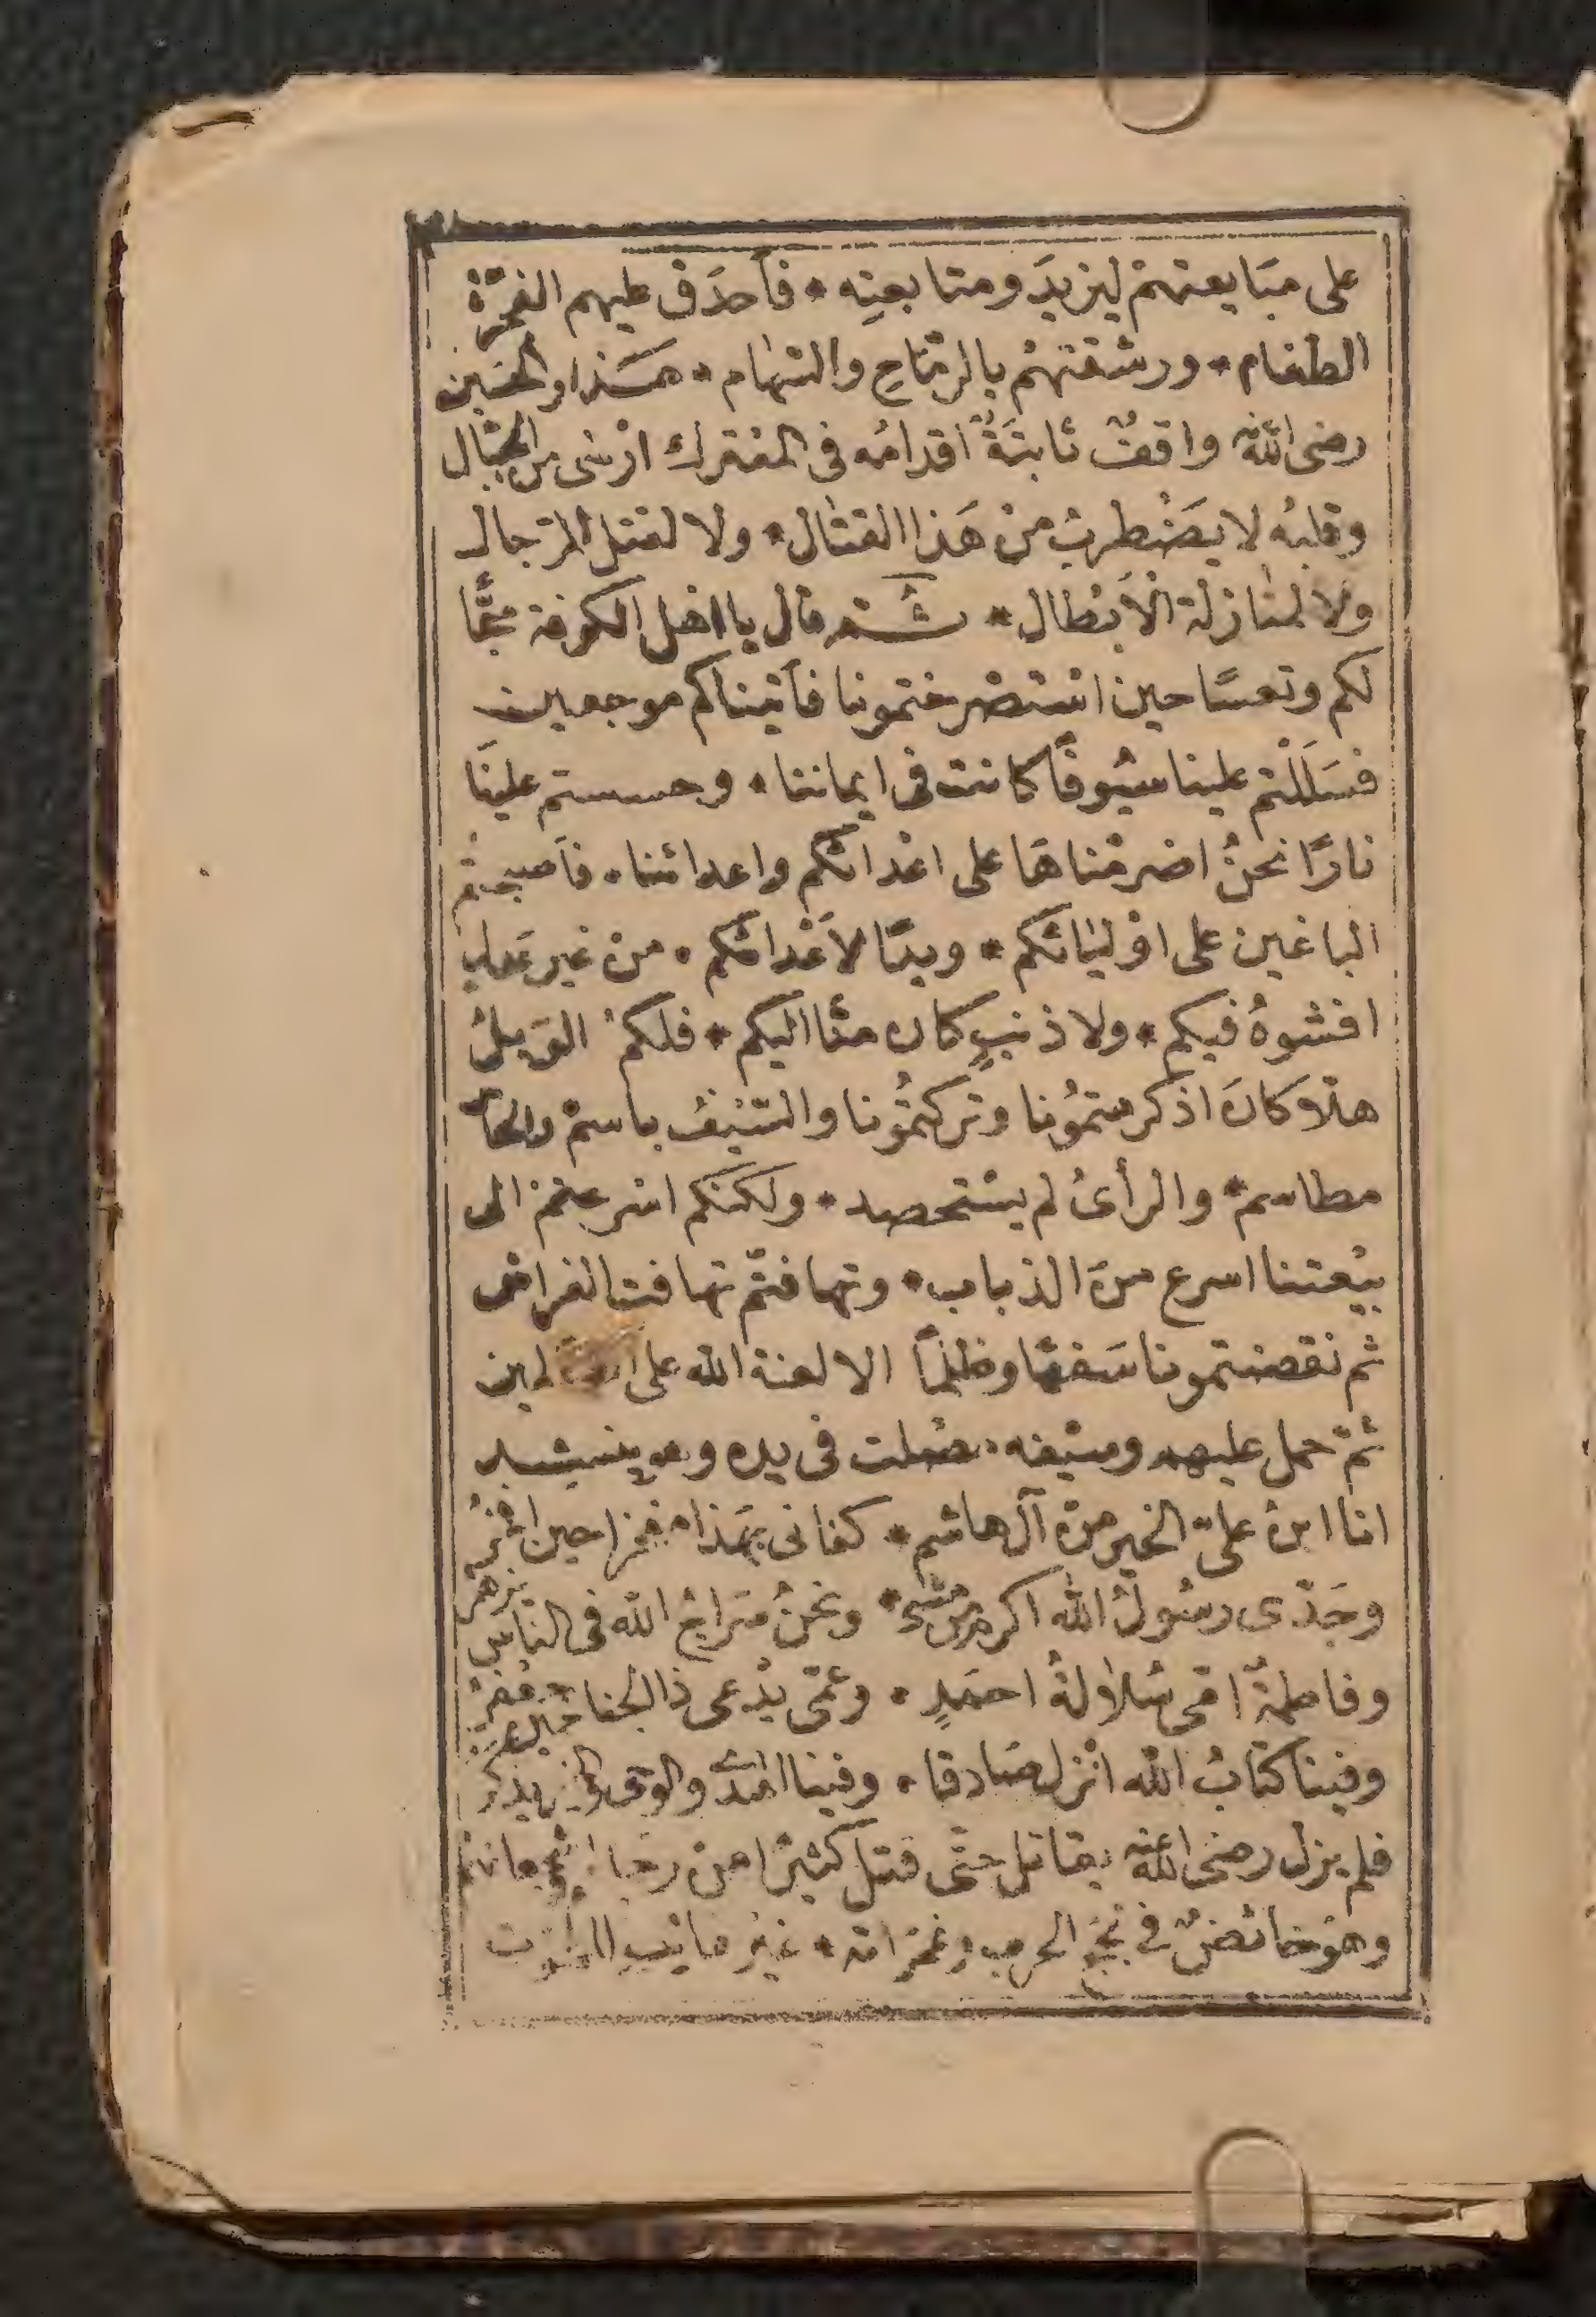 على مبَايعتهمْ ليزيدَ ومتابعتِه * فأحدَق عليهم الفجَرَة
الطغام * ورشقتهُم بالرمَاحِ والسّهَام * هَذا والحسَين
رضى الله واقفٌ ثابتَةٌ اقدامُه فى المعْترك ارْسٰى من الجبَال
وقلبُه لا يَضْطربُ منْ هَذا القتٰال * ولا لقتل الرجال
ولا لمنٰازلة الْأبْطال * ثـم قال يا اهل الكوفة
لكم وتعسًا حين اسْتصْرختمونا فأتيناكم موجعين
فسَلَلْتم علينا سيُوفًا كانت فى ايماننا * وحسستم علينَا
نارًا نحنُ اضرمْناهَا على اعْدائكم واعدائنا * فأصبحتم
الباغين على اوْليٰائكم * ويدًا لأعْدائكم * منْ غير عَدلٍ
افشوهُ فيكم * ولا ذنبٍ كان منّا اليكم * فلكمُ الوَيلُ
هلّا كانَ اذ كرهتمُونا وتركتمُونا والسّيْفُ باسمْ والجأ
مطاسم * والرأىُ لم يسْتحصد * ولكنكم اسْرعتمْ الى
بيْعتنا اسرع منَ الذباب * وتهافتّم تهافت الفراش
ثم نقضتمونا سَفهًا وظلمًا الا لعنة الله على الظالمين
ثمّ حمل عليهم وسيْفه مصْلت فى يده وهو ينشد
انا ابنُ علىّ الخيرِ منْ آل هاشم * كفانى بهَذا مفخرا حين افخرُ
وجَدّى رسُولُ الله اكرم من مشى * ونحنُ سَراجُ الله فى النّاس نزهر
وفاطمةٌ امّى سُلٰالةُ احمَدٍ * وعمّى يدْعى ذا الجناحين جعْفرُ
وفينا كتٰابُ الله انْزل صَادقا * وفينا الهدى والوحى والخير يذكر
فلم يزل رضى الله عنه يقاتل حتّى قتل كثيرًا منْ رجَا
وهوَ خائضٌ فى لجج الحرب وغمراته * غيْر هائب الموت